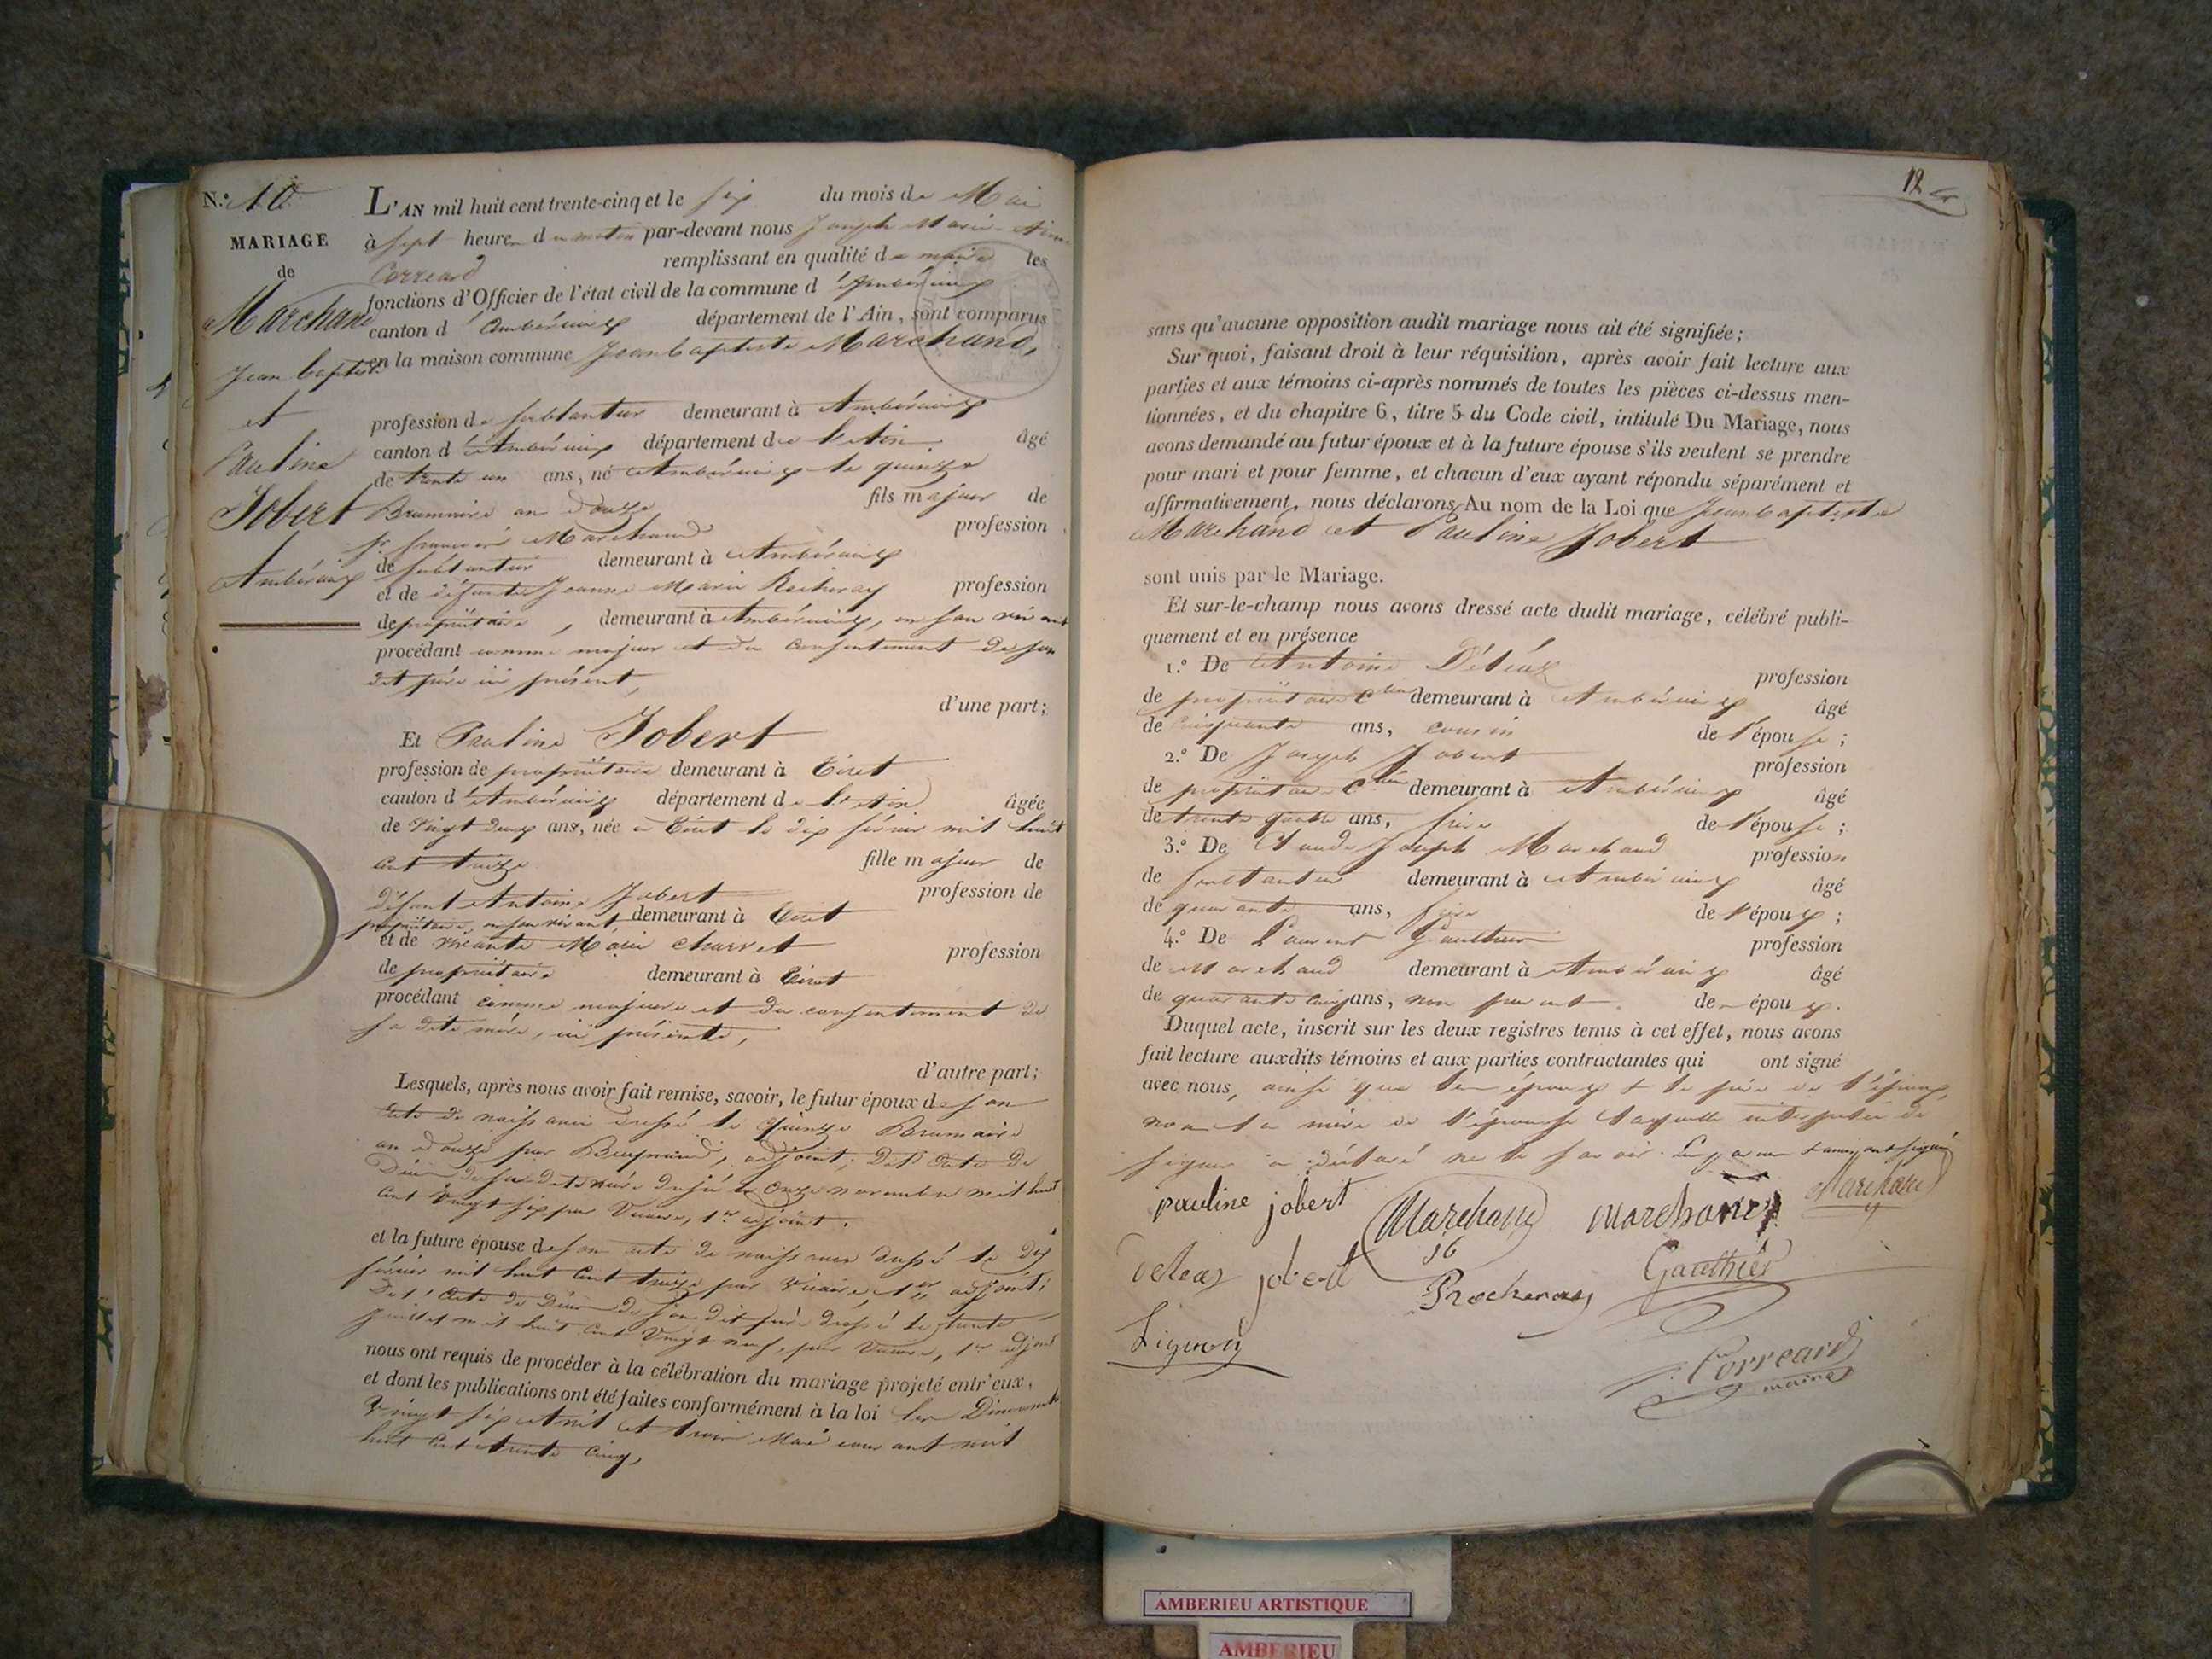 N.° 10
MARIAGE
de
Marchand
Jean baptiste
et
Pauline
Jobert
Ambérieux
L'AN mil huit cent trente-cinq et le six du mois de Mai
à sept heures du matin par-devant nous Joseph Marie Aimé
Correard remplissant en qualité de maire les
fonctions d'Officier de l'état civil de la commune d'Ambérieux
canton d'Ambérieux département de l'Ain, sont comparus
en la maison commune Jean baptiste Marchand,
profession de demeurant à Ambérieux
canton d'Ambérieux département de l'Ain âgé
de trente un ans, né à Ambérieux le quinze
Brumaire an douze fils majeur de
françois Marchand profession
de demeurant à Ambérieux
et de défunte Jeanne Marie profession
de propriétaire, demeurant à Ambérieux, en son vivant
procédant comme majeur et du consentement de son
dit père ici présent,
d'une part;
Et Pauline Jobert
profession de propriétaire demeurant à Tiret
canton d'Ambérieux département de l'Ain âgée
de vingt deux ans, née à Tiret le dix février mil huit
cent treize fille majeur de
défunt Antoine Jobert profession de
propriétaire, en son vivant demeurant à Tiret
et de vivante Marie Charvet profession
de propriétaire demeurant à Tiret
procédant comme majeure et du consentement de
sa dite mère, ici présente,
d'autre part;
Lesquels, après nous avoir fait remise, savoir, le futur époux de son
acte de naissance dressé le quinze Brumaire
an douze par adjoint; de l'acte de
Décès de sa dite mère dressé le onze novembre mil huit
cent vingt six par 1er adjoint.
et la future épouse de son acte de naissance dressé le dix
février mil huit cent treize par 1er adjoint;
De l'acte de Décès de son dit père dressé le trente
juillet mil huit cent vingt neuf, par 1er adjoint
nous ont requis de procéder à la célébration du mariage projeté entr'eux,
et dont les publications ont été faites conformément à la loi les Dimanches
vingt six avril et trois Mai courant mil
huit cent trente cinq,
12
sans qu'aucune opposition audit mariage nous ait été signifiée;
Sur quoi, faisant droit à leur réquisition, après avoir fait lecture aux
parties et aux témoins ci-après nommés de toutes les pièces ci-dessus men-
tionnées, et du chapitre 6, titre 5 du Code civil, intitulé Du Mariage, nous
avons demandé au futur époux et à la future épouse s'ils veulent se prendre
pour mari et pour femme, et chacun d'eux ayant répondu séparément et
affirmativement, nous déclarons Au nom de la Loi que Jean baptiste
Marchand et Pauline Jobert
sont unis par le Mariage.
Et sur-le-champ nous avons dressé acte dudit mariage, célébré publi-
quement et en présence
1.° De Antoine profession
de propriétaire demeurant à Ambérieux âgé
de cinquante ans, cousin de l'épouse;
2.° De Joseph Jobert profession
de propriétaire demeurant à Ambérieux âgé
de trente quatre ans, frère de l'épouse;
3.° De Claude Joseph Marchand profession
de demeurant à Ambérieux âgé
de quarante ans, frère de l'époux;
4.° De Laurent Gauthier profession
de Marchand demeurant à Ambérieux âgé
de quarante cinq ans, non parent de époux.
Duquel acte, inscrit sur les deux registres tenus à cet effet, nous avons
fait lecture auxdits témoins et aux parties contractantes qui ont signé
avec nous, ainsi que les époux & le père de l'époux,
non la mère de l'épouse laquelle interpellée de
signer a déclaré ne le savoir.
pauline jobert Marchand Marchand Marchand
jobert Gauthier
Correard
maire
AMBERIEU ARTISTIQUE
AMBERIEU